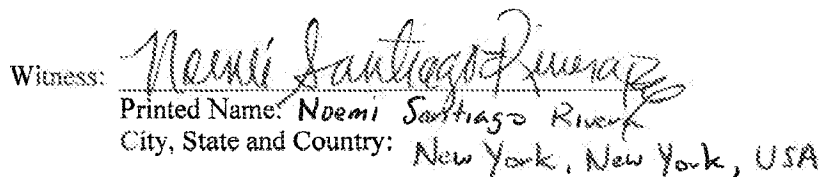 Witness: Noemí Santiago Rivera
Printed Name: Noemi Santiago Rivera
City, State and Country: New York, New York, USA